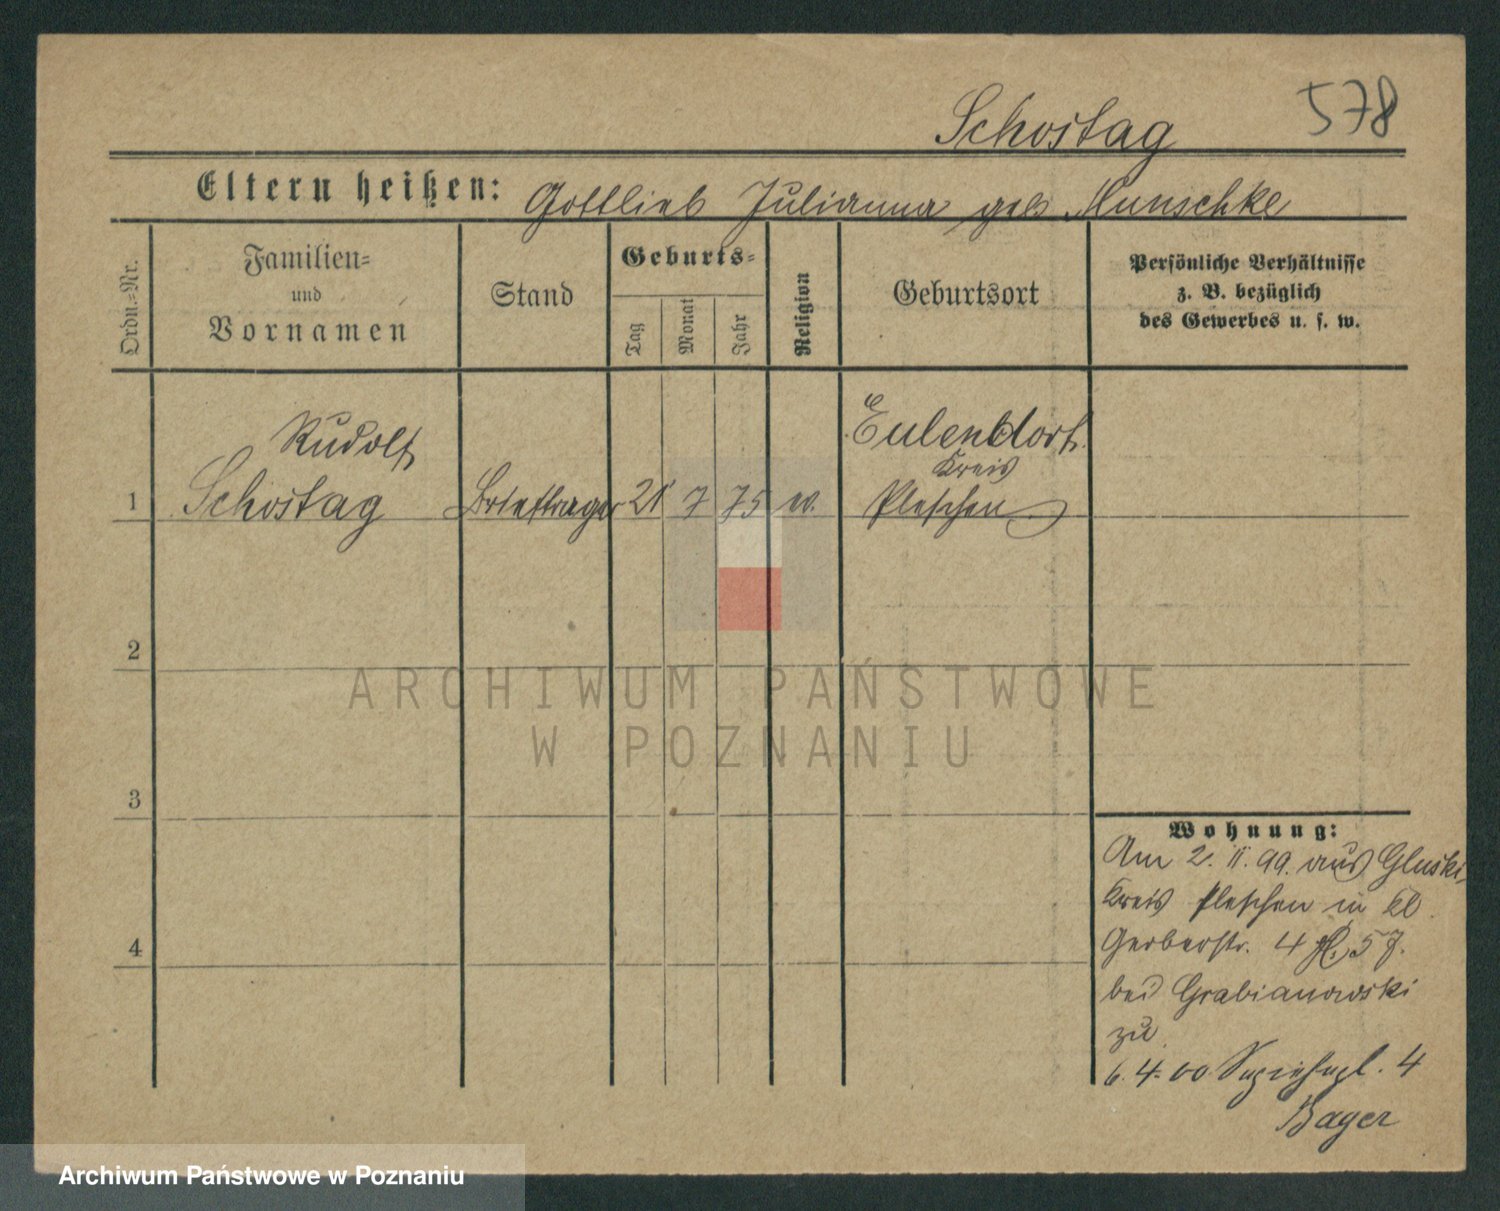 578
Schostag
Eltern heißen: Gottlieb Julianna geb Munschke
Ordn.=Nr.
Familien=
und
Vornamen
Stand
Geburts=
Tag
Monat
Jahr
Religion
Geburtsort
Persönliche Verhältnisse
z. B. bezüglich
des Gewerbes u. s. w.
1
Rudolf
Schostag
Briefträger
21
7
75
ev.
Eulendorf.
Kreis
Pleschen
2
ARCHIWUM PAŃSTWOWE
W POZNANIU
3
4
Wohnung:
Am 2. II. 99. aus Gluski,
Kreis Pleschen in kl.
Gerberstr. 4 57.
bei Grabianowski
zu
6. 4. 00 4
Bager
Archiwum Państwowe w Poznaniu